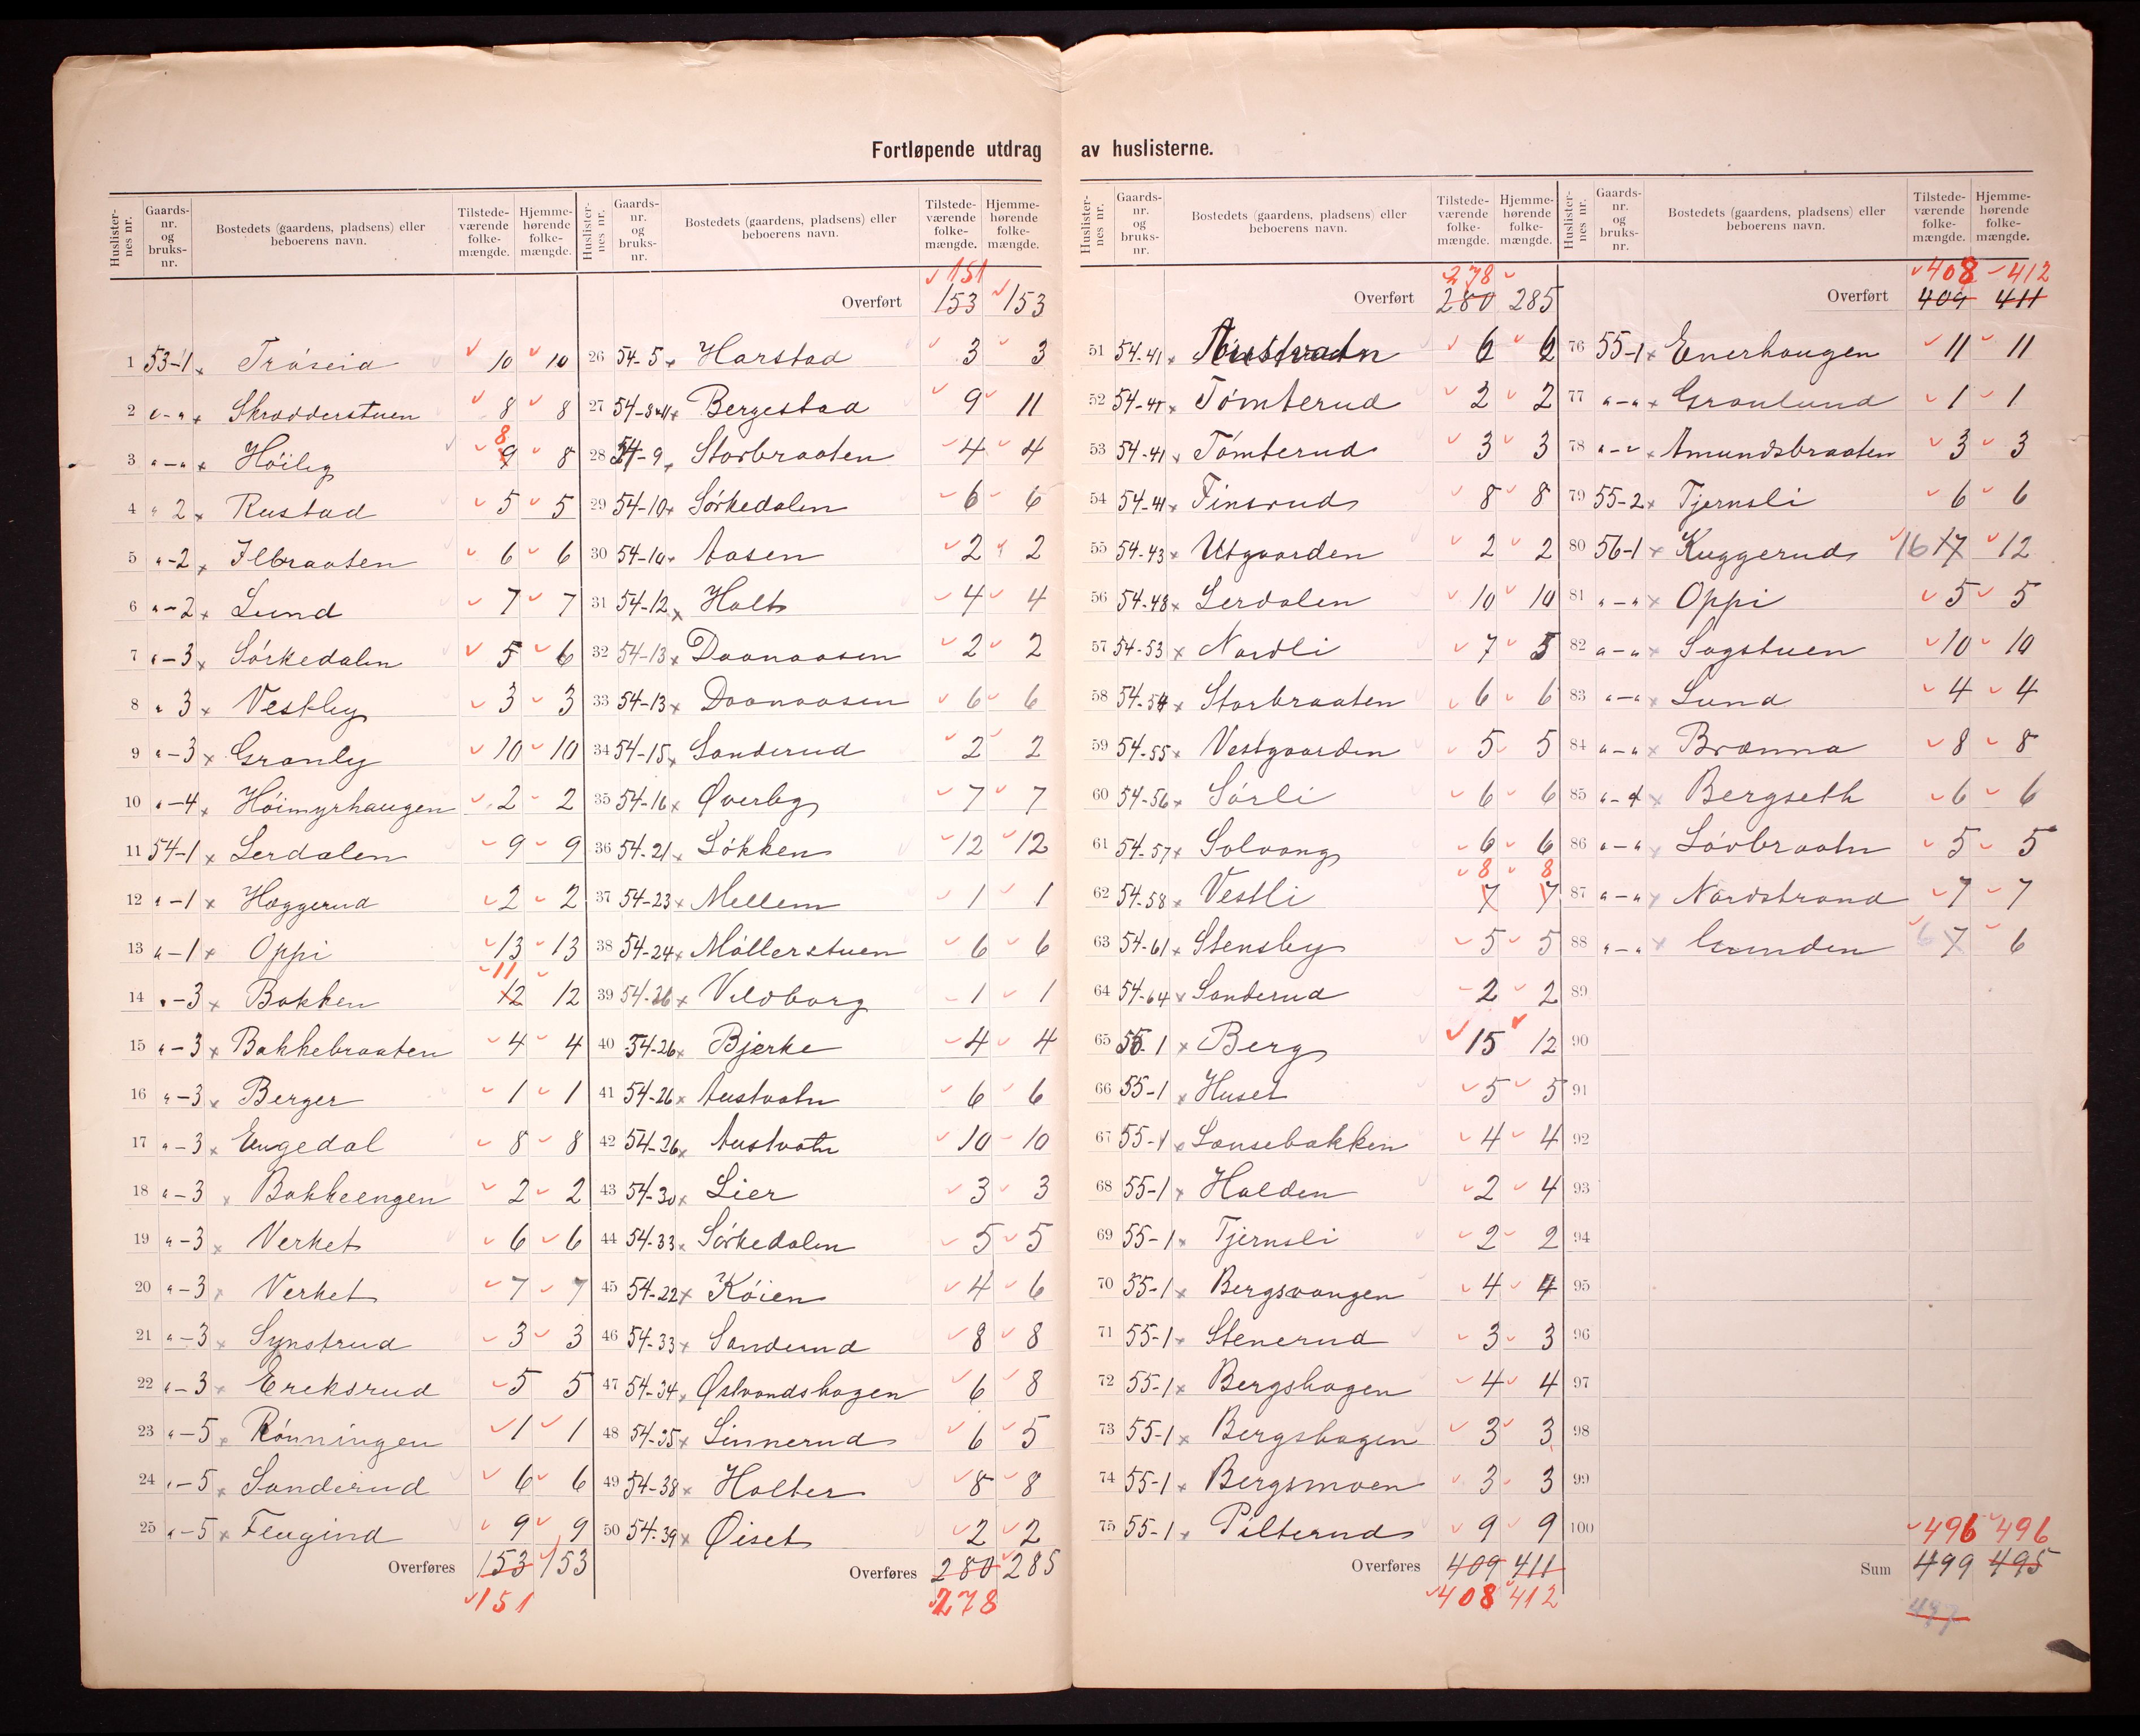 Fortløpende utdrag av huslisterne.
Huslister-nes nr. Gaards-nr. og bruks-nr. Bostedets (gaardens, pladsens) eller beboerens navn. Tilstede-værende folke-mængde. Hjemme-hørende folke-mængde.
1 53-1 x Tråseia 10 10
2 „-„ x Skrædderstuen 8 8
3 „-„ x Höiby 8 9 8
4 „ 2 x Rustad 5 5
5 „-2 x Ilbraaten 6 6
6 „-2 x Lund 7 7
7 „-3 x Sörkedalen 5 6
8 „ 3 x Vestby 3 3
9 „-3 x Granly 10 10
10 „-4 x Höimyrhaugen 2 2
11 54-1 x Lerdalen 9 9
12 „-1 x Haggerud 2 2
13 „-1 x Oppi 13 13
14 „-3 x Bakken 11 12 12
15 „-3 x Bakkebraaten 4 4
16 „-3 x Berger 1 1
17 „-3 x Engedal 8 8
18 „-3 x Bakkeengen 2 2
19 „-3 x Verket 6 6
20 „-3 x Verket 7 7
21 „-3 x Synstrud 3 3
22 „-3 x Ereksrud 5 5
23 „-5 x Rönningen 1 1
24 „-5 x Sanderud 6 6
25 „-5 x 9 9
Overføres 153 153
151
Huslister-nes nr. Gaards-nr. og bruks-nr. Bostedets (gaardens, pladsens) eller beboerens navn. Tilstede-værende folke-mængde. Hjemme-hørende folke-mængde.
151
Overført 153 153
26 54-5 x Harstad 3 3
27 54-8 x Bergestad 9 11
28 54-9 x Storbraaten 4 4
29 54-10 x Sörkedalen 6 6
30 54-10 x Aasen 2 2
31 54-12 x Holt 4 4
32 54-13 x Daanaasen 2 2
33 54-13 x Daanaasen 6 6
34 54-15 x Sanderud 2 2
35 54-16 x Øverby 7 7
36 54-21 x Lökken 12 12
37 54-23 x Mellem 1 1
38 54-24 x Möllerstuen 6 6
39 54-26 x Vildborg 1 1
40 54-26 x Bjerke 4 4
41 54-26 x Austvatn 6 6
42 54-26 x Austvatn 10 10
43 54-30 x Lier 3 3
44 54-33 x Sörkedalen 5 5
45 54-22 x Köien 4 6
46 54-33 x Sanderud 8 8
47 54-34 x Østvandshagen 6 8
48 54-35 x Linnerud 6 5
49 54-38 x Holter 8 8
50 54-39 x Øiset 2 2
Overføres 280 285
278
Huslister-nes nr. Gaards-nr. og bruks-nr. Bostedets (gaardens, pladsens) eller beboerens navn. Tilstede-værende folke-mængde. Hjemme-hørende folke-mængde.
278
Overført 280 285
51 54-41 x Austvatn 6 6
52 54-41 x Tömterud 2 2
53 54-41 x Tömterud 3 3
54 54-41 x Finsrud 8 8
55 54-43 x Utgaarden 2 2
56 54-48 x Lerdalen 10 10
57 54-53 x Nordli 7 5
58 54-54 x Storbraaten 6 6
59 54-55 x Vestgaarden 5 5
60 54-56 x Sörli 6 6
61 54-57 x Solvang 6 6
62 54-58 x Vestli 8 7 8 7
63 54-61 x Stensby 5 5
64 54-64 x Sanderud 2 2
65 55-1 x Berg 15 12
66 55-1 x Huset 5 5
67 55-1 x Lausebakken 4 4
68 55-1 x Halden 2 4
69 55-1 x Tjernsli 2 2
70 55-1 x Bergsvangen 4 4
71 55-1 x Stenerud 3 3
72 55-1 x Bergshagen 4 4
73 55-1 x Bergshagen 3 3
74 55-1 x Bergsmoen 3 3
75 55-1 x Pilterud 9 9
Overføres 409 411
408 412
Huslister-nes nr. Gaards-nr. og bruks-nr. Bostedets (gaardens, pladsens) eller beboerens navn. Tilstede-værende folke-mængde. Hjemme-hørende folke-mængde.
408 412
Overført 409 411
76 55-1 x Enerhaugen 11 11
77 „-„ x Granlund 1 1
78 „-„ x Amundsbraaten 3 3
79 55-2 x Tjernsli 6 6
80 56-1 x Kuggerud 16 17 12
81 „-„ x Oppi 5 5
82 „-„ x Sagstuen 10 10
83 „-„ x Lund 4 4
84 „-„ x Brænna 8 8
85 „-4 x Bergseth 6 6
86 „-„ x Lövbraatn 5 5
87 „-„ x Nordstrand 7 7
88 „-„ x 6 7 6
89
90
91
92
93
94
95
96
97
98
99
100
496 496
Sum 499 495
497